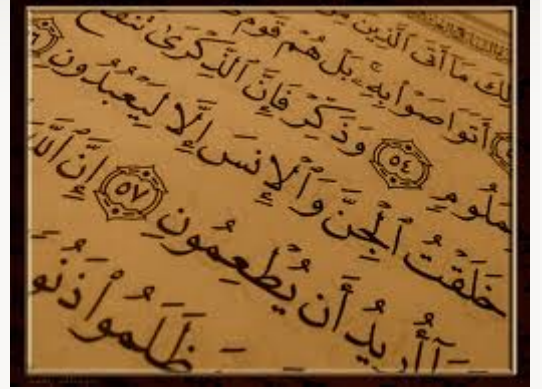 لِكَ مَآ أَتَى ٱلَّذِينَ
أَتَوَاصَوْا۟ بِهِۦ بَلْ هُمْ قَوْمٌ
مَلُومٍ ٥٤ وَذَكِّرْ فَإِنَّ ٱلذِّكْرَىٰ تَنفَعُ
خَلَقْتُ ٱلْجِنَّ وَٱلْإِنسَ إِلَّا لِيَعْبُدُونِ
أُرِيدُ أَن يُطْعِمُونِ ٥٧ إِنَّ ٱللَّهَ
ظَلَمُوا۟ ذَنُو